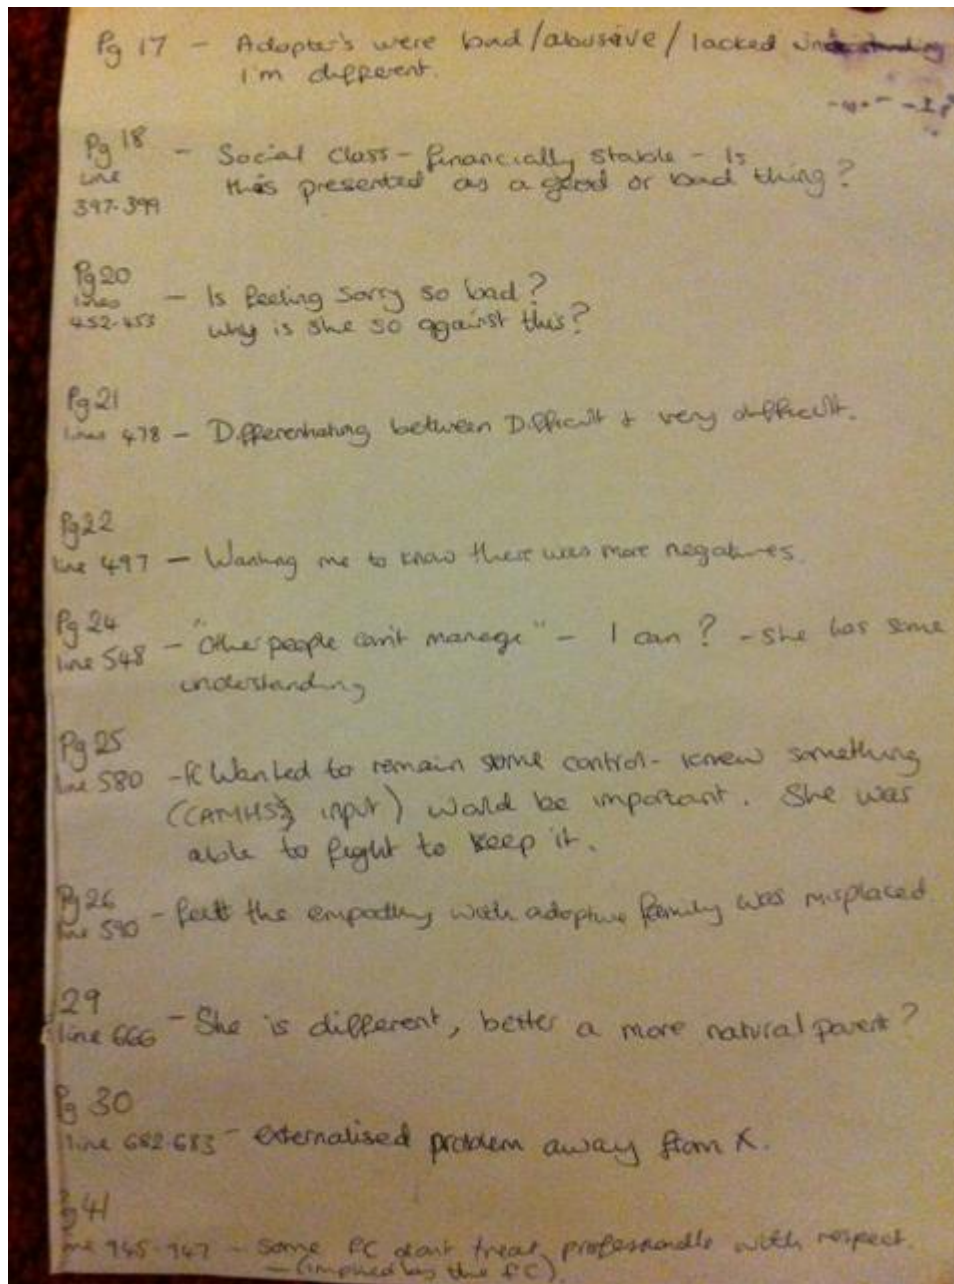 Pg 17 - Adopter's were bad/abusive/lacked understanding
I'm different.
Pg 18 - Social Class - financially stable - Is
line this presented as a good or bad thing?
397-399
Pg 20
lines - Is feeling sorry so bad?
452-453 why is she so against this?
Pg 21
lines 478 - Differentiating between Difficult + very difficult.
Pg 22
line 497 - Wanting me to know there was more negatives.
Pg 24
line 548 - "Other people can't manage" - I can? - She has some
understanding
Pg 25
line 580 - fc Wanted to remain some control - knew something
(CAMHS input) would be important. She was
able to fight to keep it.
Pg 26
line 590 - felt the empathy with adoptive family was misplaced.
29
line 666 - She is different, better a more natural parent?
Pg 30
line 682-683 - externalised problem away from X.
Pg 41
line 945-947 - some FC dont treat professionals with respect.
- (implied by this FC).